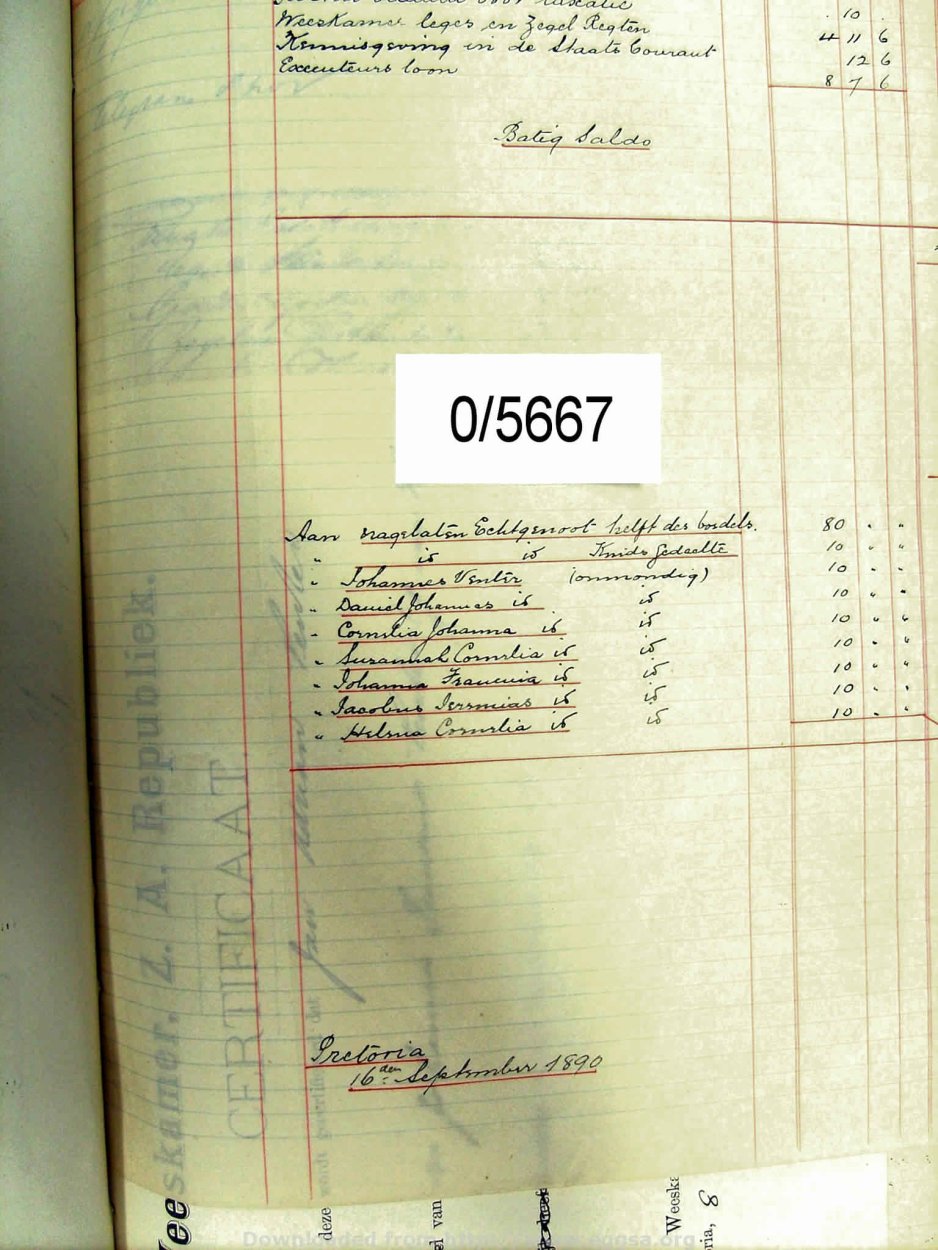 voor taxatie . 10 .
Weeskamer leges en Zegel Regten 4 11 6
Kennisgeving in de Staats Courant 12 6
Executeurs loon 8 7 6
Batig Saldo
0/5667
Aan nagelaten Echtgenoot helft des boedels. 80 " "
" id id Kinds gedeelte 10 " "
" Johannes Venter (onmondig) 10 " "
" Daniel Johannes id id 10 " "
" Cornelia Johanna id id 10 " "
" Suzannah Cornelia id id 10 " "
" Johanna Francina id id 10 " "
" Jacobus Jeremias id id 10 " "
" Helena Cornelia id id 10 " "
Pretoria
16den September 1890
Weeskamer, Z. A. Republiek.
CERTIFICAAT
deze
el van
Weeska
ria, 8
Downloaded from